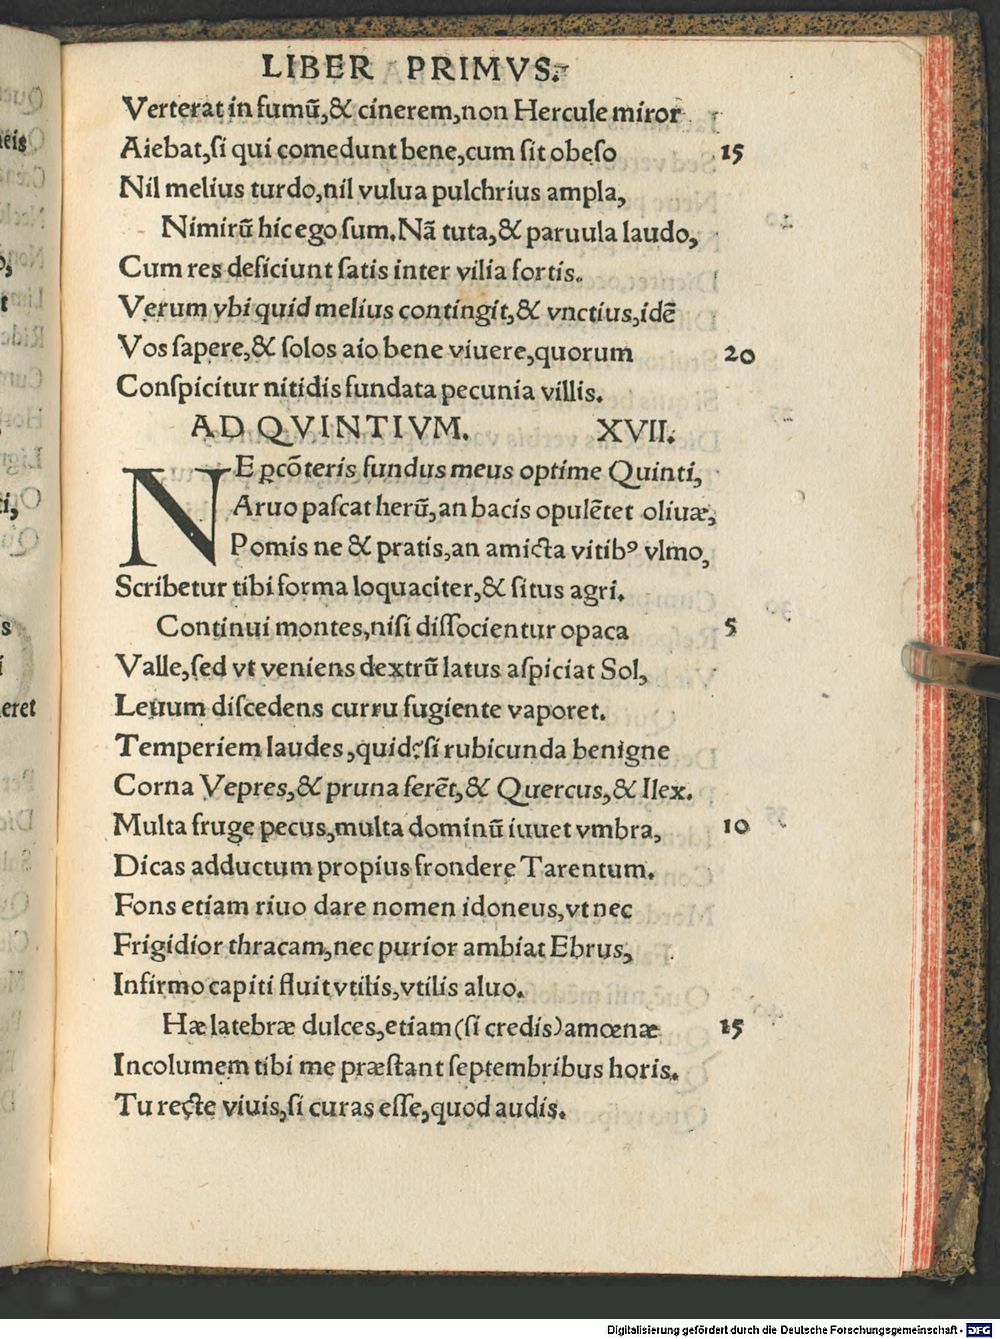 LIBER PRIMVS.
Verterat in fumũ,& cinerem,non Hercule miror
Aiebat,ſi qui comedunt bene,cum ſit obeſo 15
Nil melius turdo,nil vulua pulchrius ampla,
Nimirũ hic ego ſum.Nã tuta,& paruula laudo,
Cum res deficiunt ſatis inter vilia fortis.
Verum vbi quid melius contingit,& vnctius,idẽ
Vos ſapere,& ſolos aio bene viuere,quorum 20
Conſpicitur nitidis fundata pecunia villis.
AD QVINTIVM. XVII.
NE ꝑcõteris fundus meus optime Quinti,
Aruo paſcat herũ,an bacis opulẽtet oliuæ,
Pomis ne & pratis,an amicta vitibꝰ vlmo,
Scribetur tibi forma loquaciter,& ſitus agri.
Continui montes,niſi diſſocientur opaca 5
Valle,ſed vt veniens dextrũ latus aſpiciat Sol,
Leuum diſcedens curru fugiente vaporet.
Temperiem laudes,quid?ſi rubicunda benigne
Corna Vepres,& pruna ferẽt,& Quercus,& Ilex.
Multa fruge pecus,multa dominũ iuuet vmbra, 10
Dicas adductum propius frondere Tarentum.
Fons etiam riuo dare nomen idoneus,vt nec
Frigidior thracam,nec purior ambiat Ebrus,
Infirmo capiti fluit vtilis,vtilis aluo.
Hæ latebræ dulces,etiam(ſi credis)amœnæ 15
Incolumem tibi me præſtant ſeptembribus horis.
Tu recte viuis,ſi curas eſſe,quod audis.
Digitalisierung gefördert durch die Deutsche Forschungsgemeinschaft - DFG